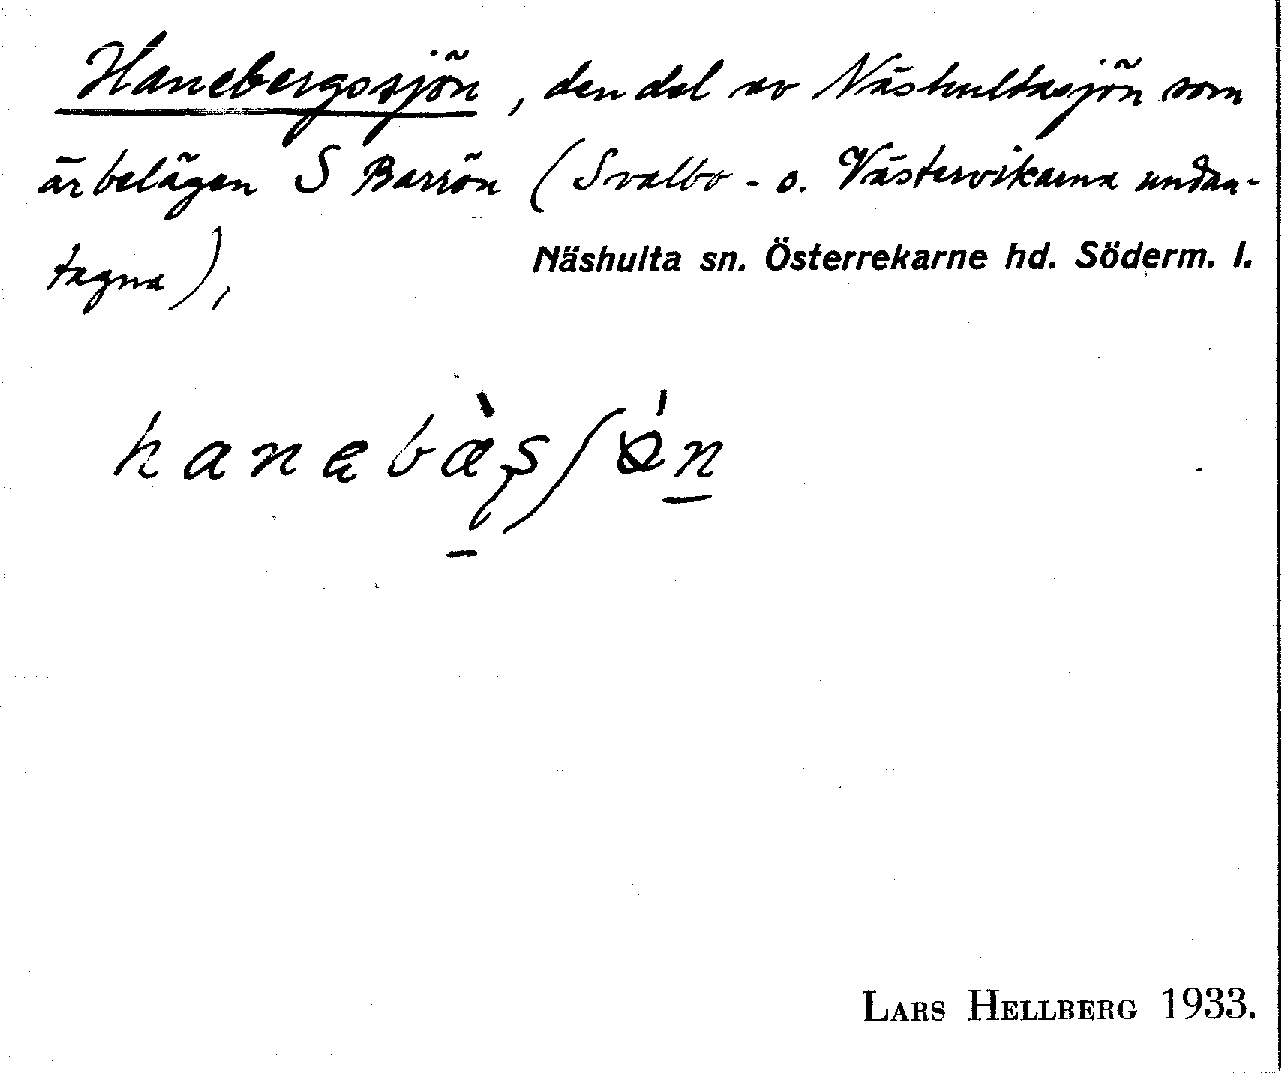 Hanebergssjön, den del av Näshultasjön som
är belägen S Barrön (Svalbo- o. Västervikarna undan-
tagna),
Näshulta sn. Österrekarne hd. Söderm. l.
Lars Hellberg 1933.